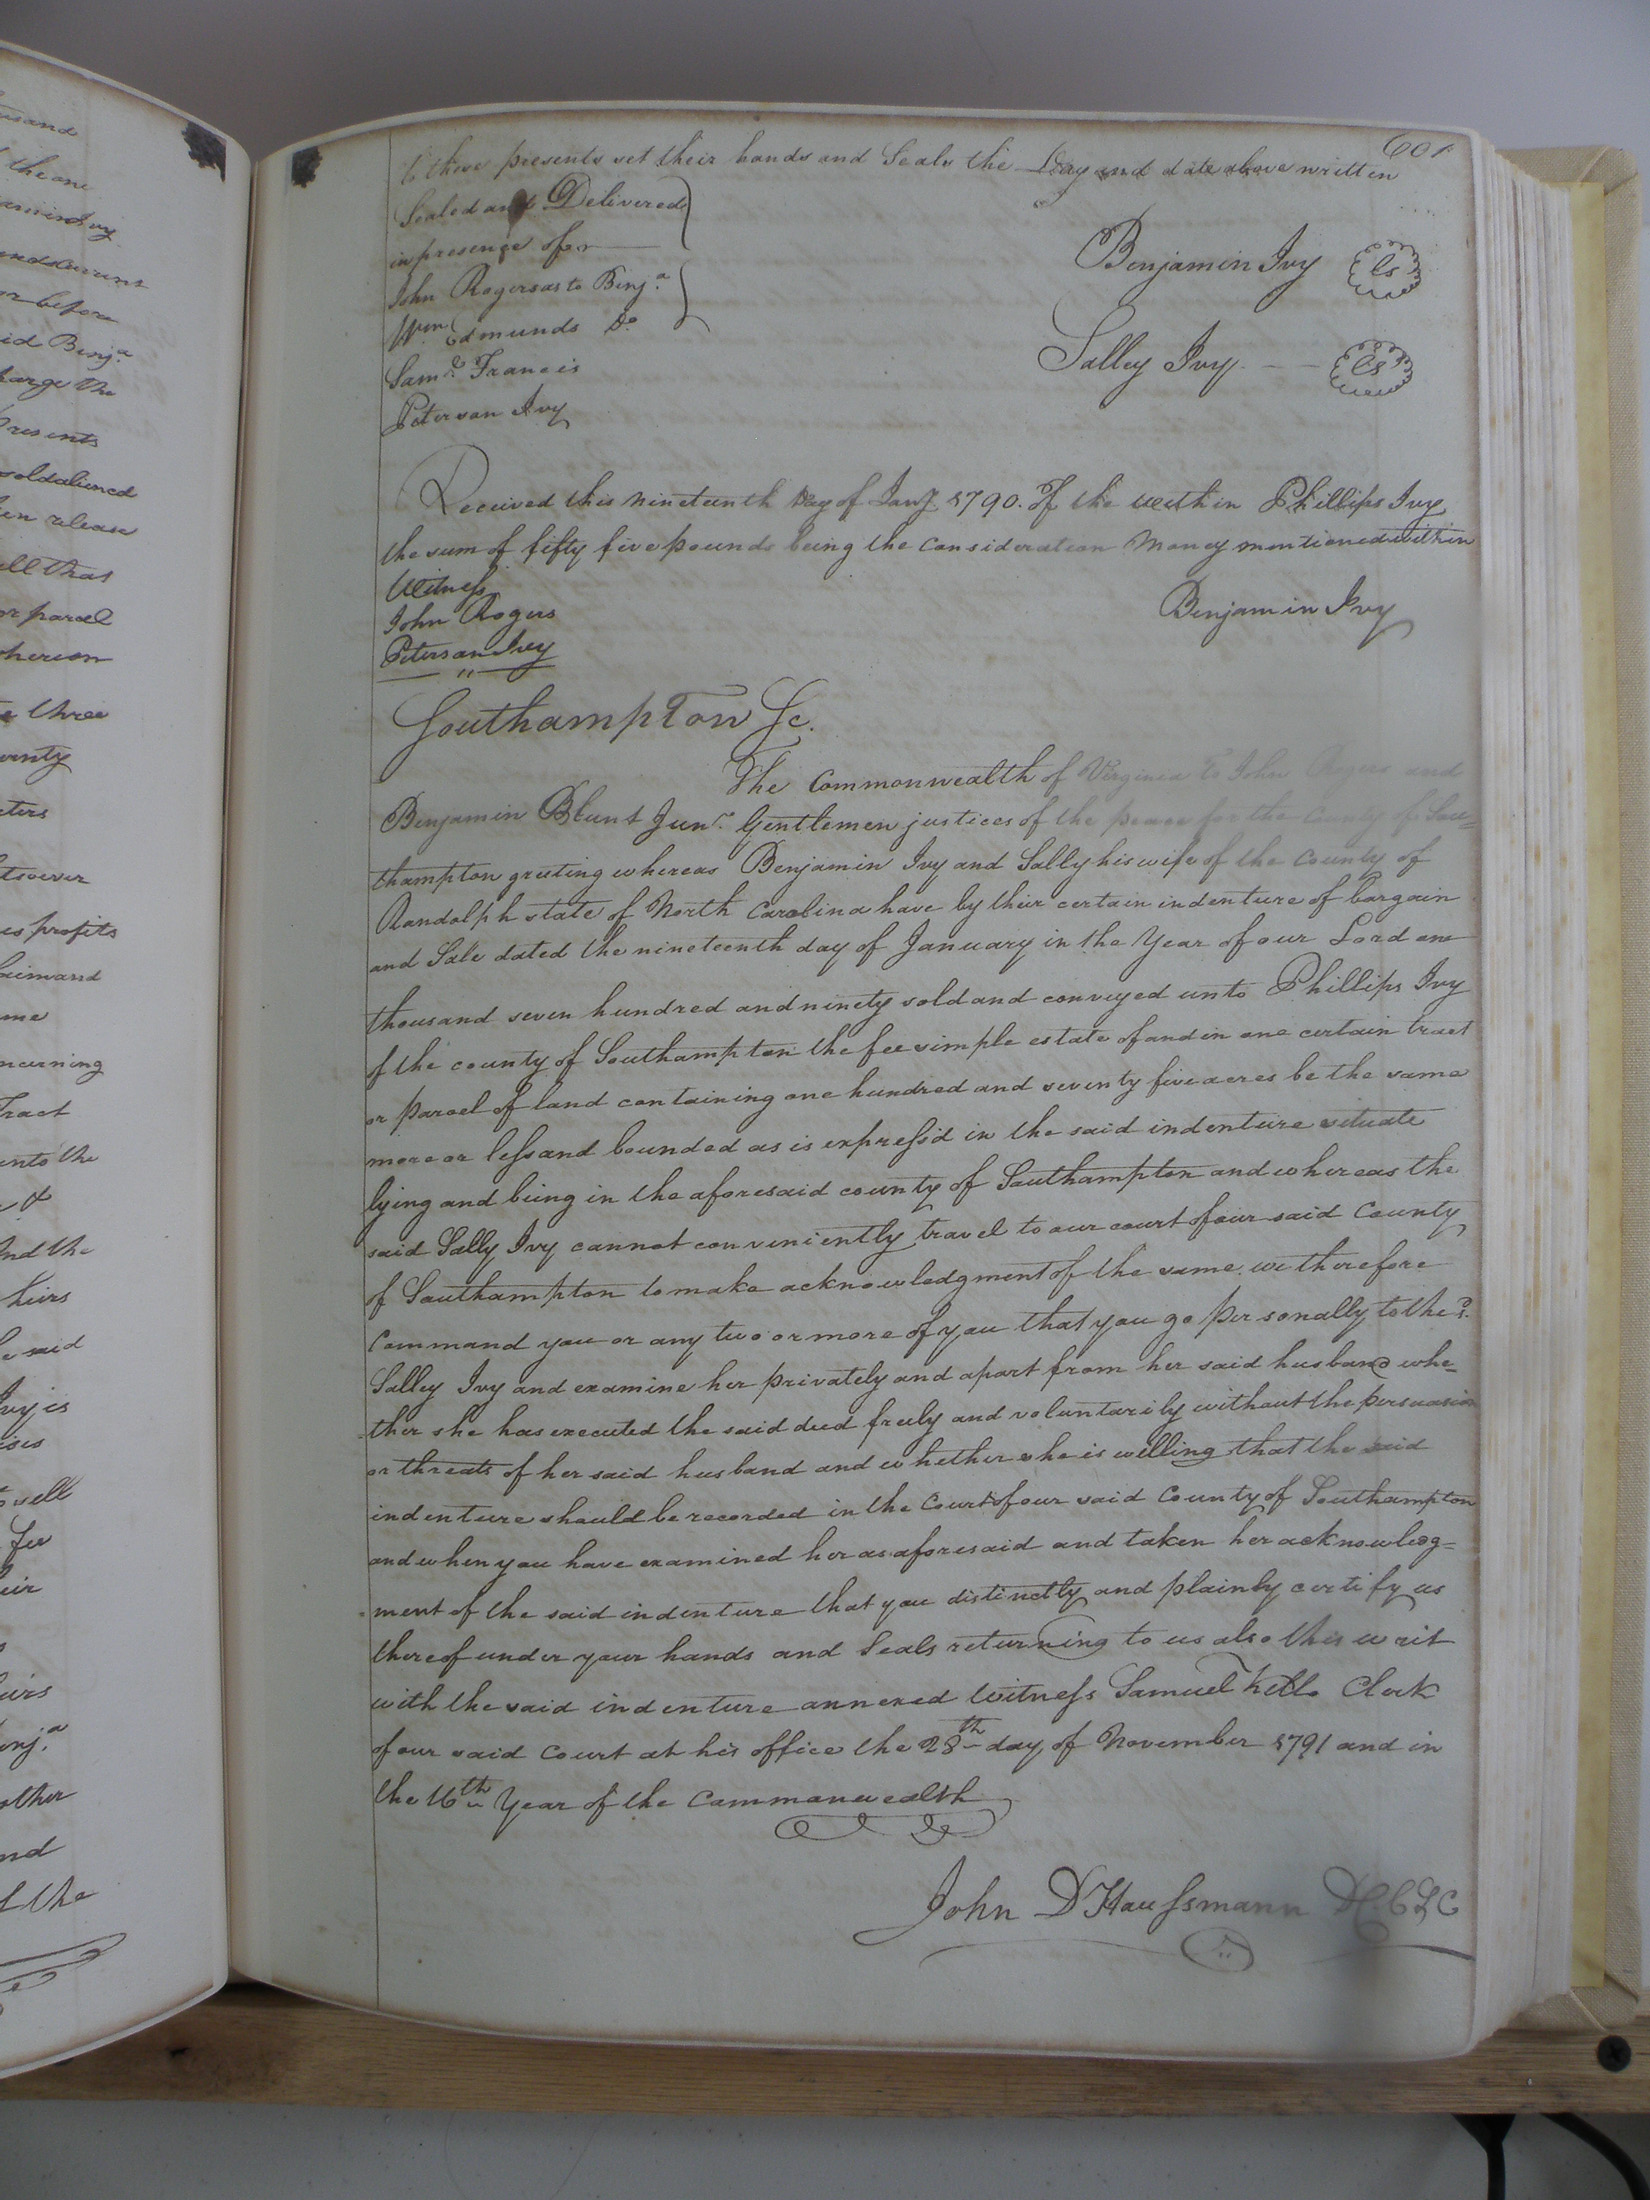 usand
the one
or before
id Benj.a
harge the
Presents
sold aliened
release
all that
or parcel
three
profits
me
Tract
unto the
And the
heirs
said
Ivy is
well
fee
Benj.a
other
nd
the
601
to these presents set their hands and Seals the Day and date above written
Sealed and Delivered
in presence of
John Rogers as to Benj.a
Wm. Edmunds Do
Saml. Francis
Peterson Ivy
Benjamin Ivy Ls
Salley Ivy Ls
Received this nineteenth Day of Jany 1790. Of the within Phillips Ivy
the sum of fifty five pounds being the consideration Money mentioned within
Witness
John Rogers
Peterson Ivey
Benjamin Ivy
Southampton Sc.
The Commonwealth of Virginia to John Rogers and
Benjamin Blunt Junr. Gentlemen justices of the peace for the County of Sou=
thampton greeting whereas Benjamin Ivy and Sally his wife of the County of
Randolph state of North Carolina have by their certain indenture of bargain
and Sale dated the nineteenth day of January in the Year of our Lord one
thousand seven hundred and ninety sold and conveyed unto Phillips Ivy
of the county of Southampton the fee simple estate of and in one certain tract
or parcel of land containing one hundred and seventy five acres be the same
more or less and bounded as is express'd in the said indenture situate
lying and being in the aforesaid county of Southampton and whereas the
said Sally Ivy cannot conveniently travel to our court of our said County
of Southampton to make acknowledgment of the same we therefore
Command you or any two or more of you that you go personally to the sd.
Salley Ivy and examine her privately and apart from her said husband whe=
ther she has executed the said deed freely and voluntarily without the persuasion
or threats of her said husband and whether she is willing that the said
indenture should be recorded in the Court of our said County of Southampton
and when you have examined her as aforesaid and taken her acknowledg=
ment of the said indenture that you distinctly and plainly certify us
thereof under your hands and Seals returning to us also this writ
with the said indenture annexed Witness Samuel Kello Clerk
of our said Court at his office the 28th day of November 1791 and in
the 16th Year of the Commonwealth
John D Haussmann D. C S C